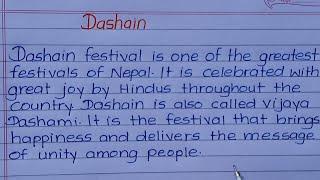 Dashain
Dashain festival is one of the greatest
festivals of Nepal. It is celebrated with
great joy by Hindus throughout the
country. Dashain is also called Vijaya
Dashami. It is the festival that brings
happiness and delivers the message
of unity among people.